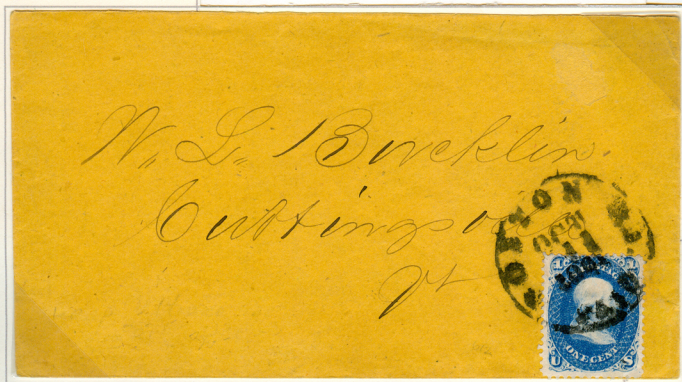 W. L. Bucklin.
Cuttingsville
Vt
BOSTON
OCT
11
ONE CENT